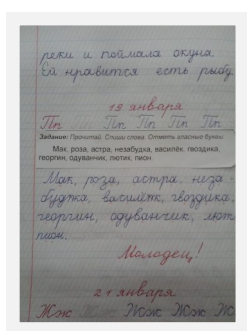 реки и поймала окуня.
Ей нравится есть рыбу.
13 января
Пп Пп Пп Пп Пп
Задание: Прочитай. Спиши слова. Отметь гласные буквы.
Мак, роза, астра, незабудка, василёк, гвоздика,
георгин, одуванчик, лютик, пион.
Мак, роза, астра, неза-
будка, василёк, гвоздика,
георгин, одуванчик, лют
пион.
Молодец!
21 января
Жж Жж Жж Жж Ж